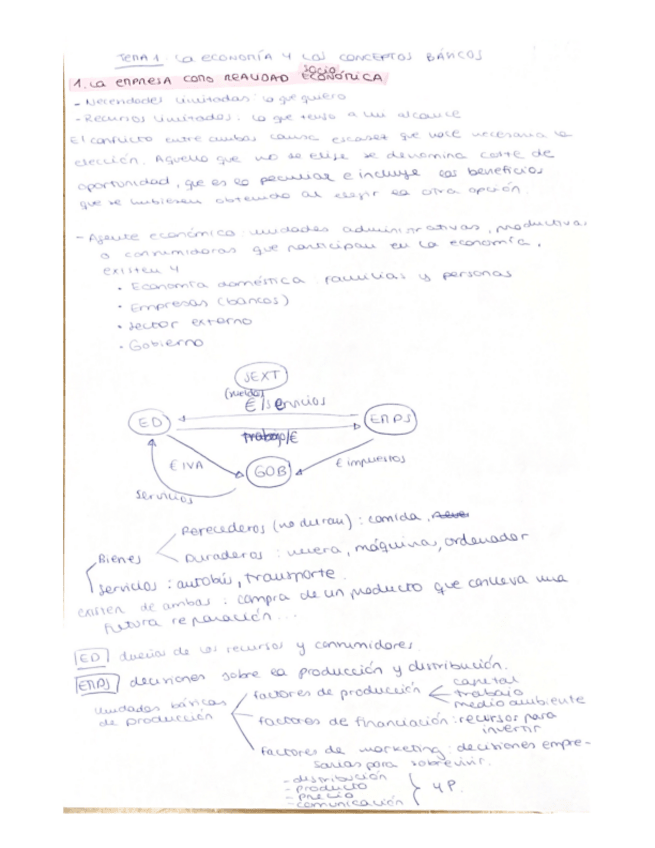 TEMA 1. La ECONOMÍA Y LOS CONCEPTOS BÁSICOS
1. LA EMPRESA COMO REALIDAD SOCIO ECONÓMICA
- Necesidades ilimitadas: lo que quiero
- Recursos limitados: lo que tengo a mi alcance
El conflicto entre ambas causa escasez que hace necesaria la
elección. Aquello que no se elije se denomina coste de
oportunidad, que es lo peculiar e incluye los beneficios
que se hubiesen obtenido al elegir la otra opción.
- Agente económico: unidades administrativas, productivas
o consumidoras que participan en la economía,
existen 4
• Economía doméstica: familias y personas
• Empresas (bancos)
• Sector externo
• Gobierno
SEXT
(sueldos)
€/servicios
ED
EMPS
trabajo/€
€ IVA
GOB
€ impuestos
servicios
Bienes
Perecederos (no duran): comida,
Duraderos: nevera, máquinas, ordenador
Servicios: autobús, transporte.
existen de ambas: compra de un producto que conlleva una
futura reparación...
ED dueña de los recursos y consumidores.
EMPS decisiones sobre la producción y distribución.
unidades básicas
de producción
factores de producción
capital
trabajo
medio ambiente
factores de financiación: recursos para
invertir
factores de marketing: decisiones empre-
sarias para sobrevivir.
- distribución
- producto
- precio
- comunicación
4 P.